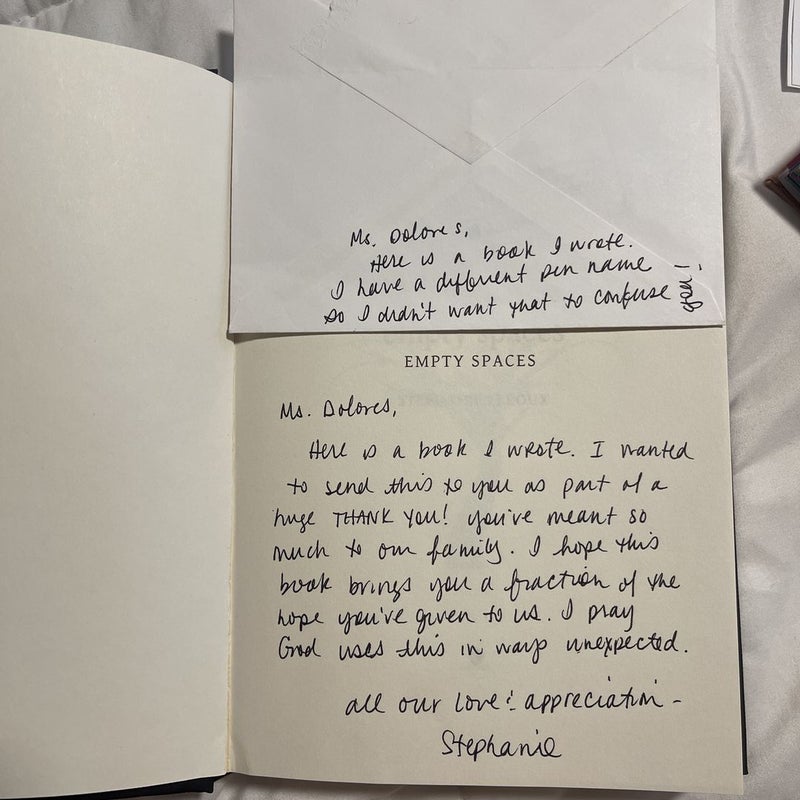 Ms. Dolores,
Here is a book I wrote.
I have a different pen name
so I didn't want that to confuse you!
EMPTY SPACES
Ms. Dolores,
Here is a book I wrote. I wanted
to send this to you as part of a
huge THANK YOU! You've meant so
much to our family. I hope this
book brings you a fraction of the
hope you've given to us. I pray
God uses this in ways unexpected.
all our love & appreciation -
Stephanie